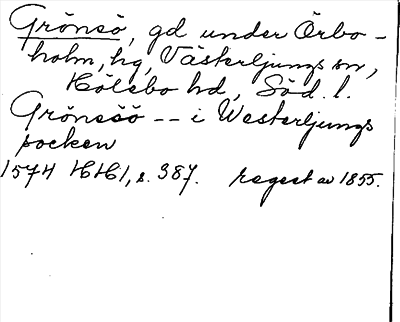 Grönsö, gd under Örbo-
holm, hg, Västerljungs sn,
Hölebo hd, Söd. l.
Grönsöö -- i Westerljungs
socken
1574 HH1, s. 387. regest av 1855.